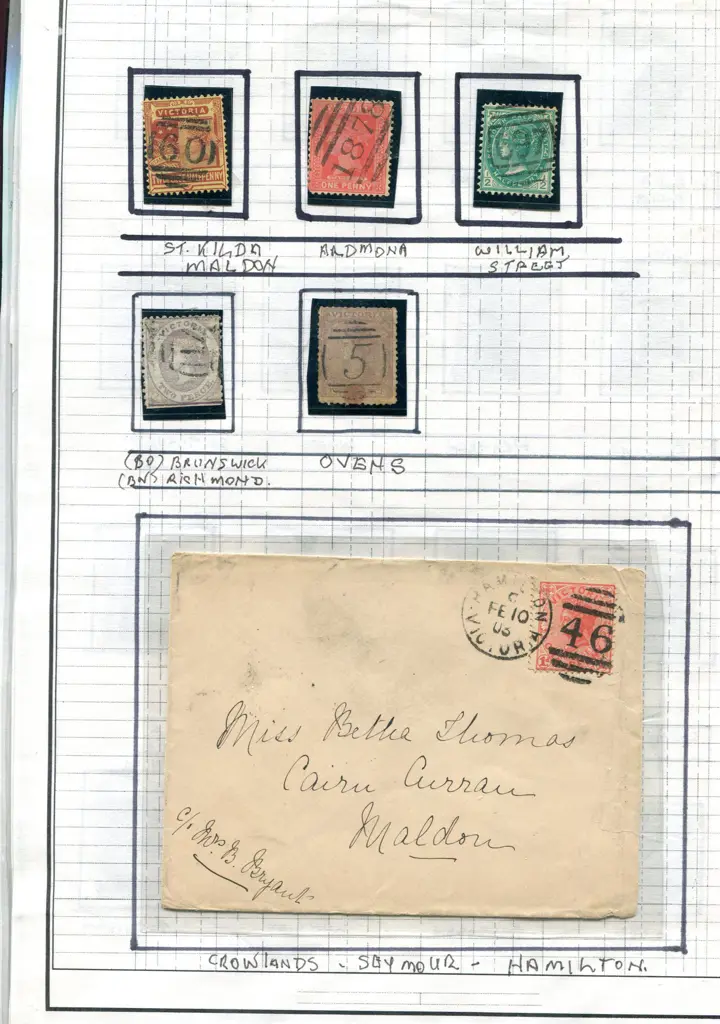 VICTORIA
60
1878
ONE PENNY
ST. KILDA
MALDON
ARDMONA
WILLIAM
STREET
VICTORIA
TWO PENCE
VICTORIA
5
(BO) BRUNSWICK
(BN) RICHMOND.
OVENS
HAMILTON
FE 10
03
VICTORIA
46
Miss Betha Thomas
Cairn Curran
Maldon
c/. Mrs B. Bryant
CROWLANDS - SEYMOUR - HAMILTON.